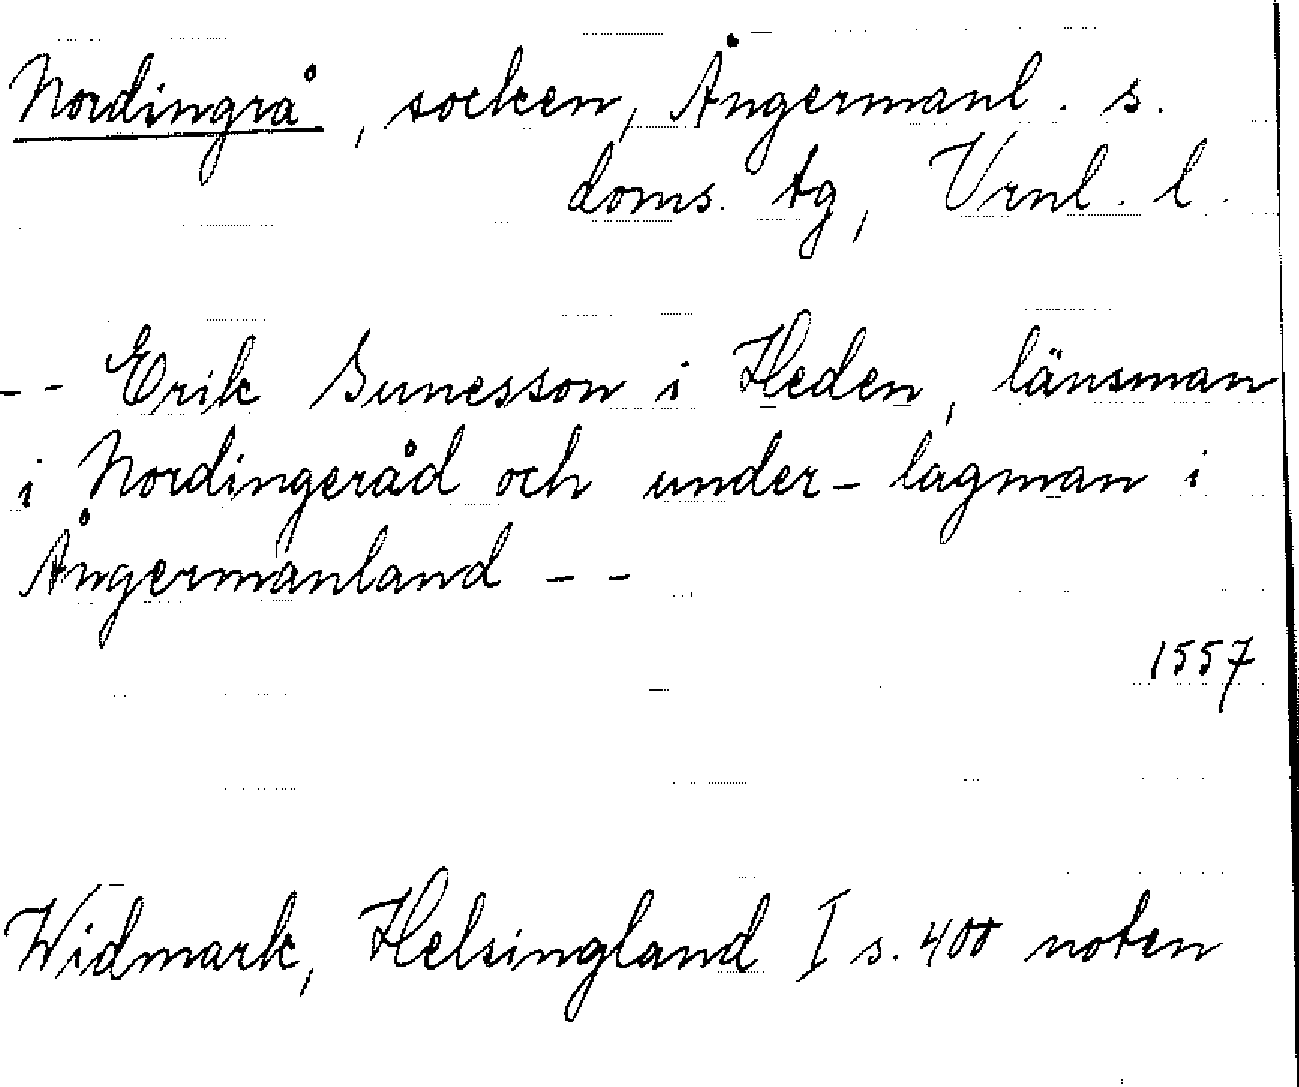 Nordingrå, socken, Ångermanl. s.
doms. tg, Vrnl. l.
- - Erik Sunesson i Heden, länsman
i Nordingeråd och under-lagman i
Ångermanland - -
1557
Widmark, Helsingland I s. 400 noten